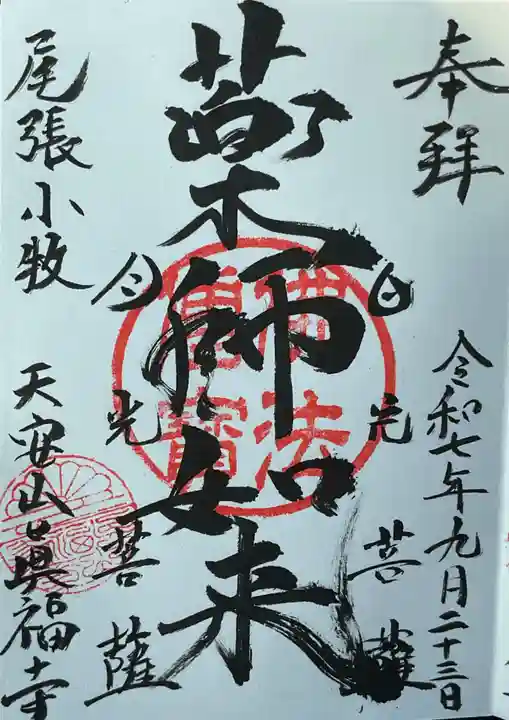 奉拝
令和七年九月二十三日
日光菩薩
薬師如来
月光菩薩
尾張小牧
天安山真福寺
佛法僧寶